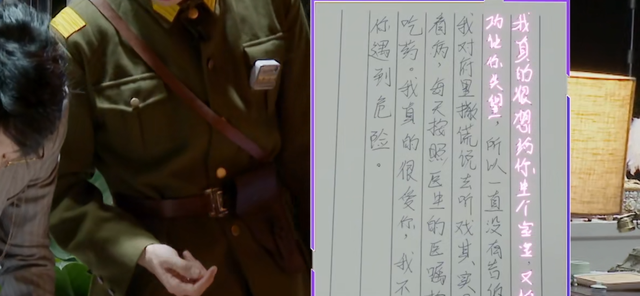 我真的很想给你生个宝宝，又怕
功让你失望，所以一直没有告诉
我对府里撒谎说去听戏其实
看病，每天按照医生的医嘱
吃药。我真的很爱你，我不
你遇到危险。